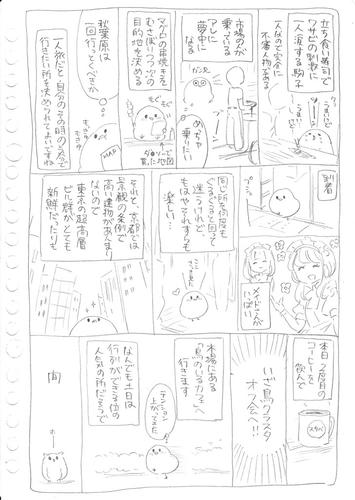 立ち食い寿司で
ワサビの刺激に
一人涙する駒子
一人なので完全に
不審人物である
うまい
けど
うまい
けど
市場の人が
乗っている
アレに
夢中に
なる
ガン見
めっちゃ
乗りたい
マグロの串焼きを
むさぼりつつ次の
目的地を決める
もぐ
もぐ
買った地図
秋葉原は
一回行っとくべきか
もぎゅ
もぎゅ
MAP
一人旅だと自分のその時の気分で
行きたい所を決められてよいですね
到着
メイドさんが
いっぱい
同じ所を何度も
ぐるぐる回って
迷うけれど、
もはやそれすらも
楽しい…
ここ
さっき
来た
それと、京都では
景観の条例で
高い建物があまり
ないので
東京の超高層
ビル群がとても
新鮮だったりも
本日2度目の
コーヒーを
飲んで
スタバ
いざ鳥クラスタ
オス会へ!!
本場にある
「鳥のいるカフェ」へ
行きます
テンション
上がってきた
なんでも土日は
行列ができる位の
人気の所だそうで